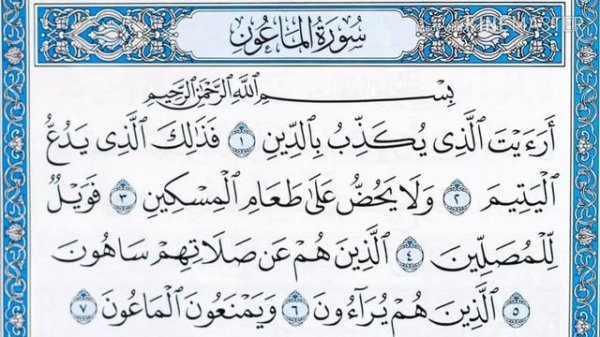 KINEMASTER
سُورَةُ الْمَاعُونِ
بِسْمِ اللَّهِ الرَّحْمَٰنِ الرَّحِيمِ
أَرَءَيْتَ الَّذِي يُكَذِّبُ بِالدِّينِ ١ فَذَٰلِكَ الَّذِي يَدُعُّ
الْيَتِيمَ ٢ وَلَا يَحُضُّ عَلَىٰ طَعَامِ الْمِسْكِينِ ٣ فَوَيْلٌ
لِّلْمُصَلِّينَ ٤ الَّذِينَ هُمْ عَن صَلَاتِهِمْ سَاهُونَ
٥ الَّذِينَ هُمْ يُرَآءُونَ ٦ وَيَمْنَعُونَ الْمَاعُونَ ٧